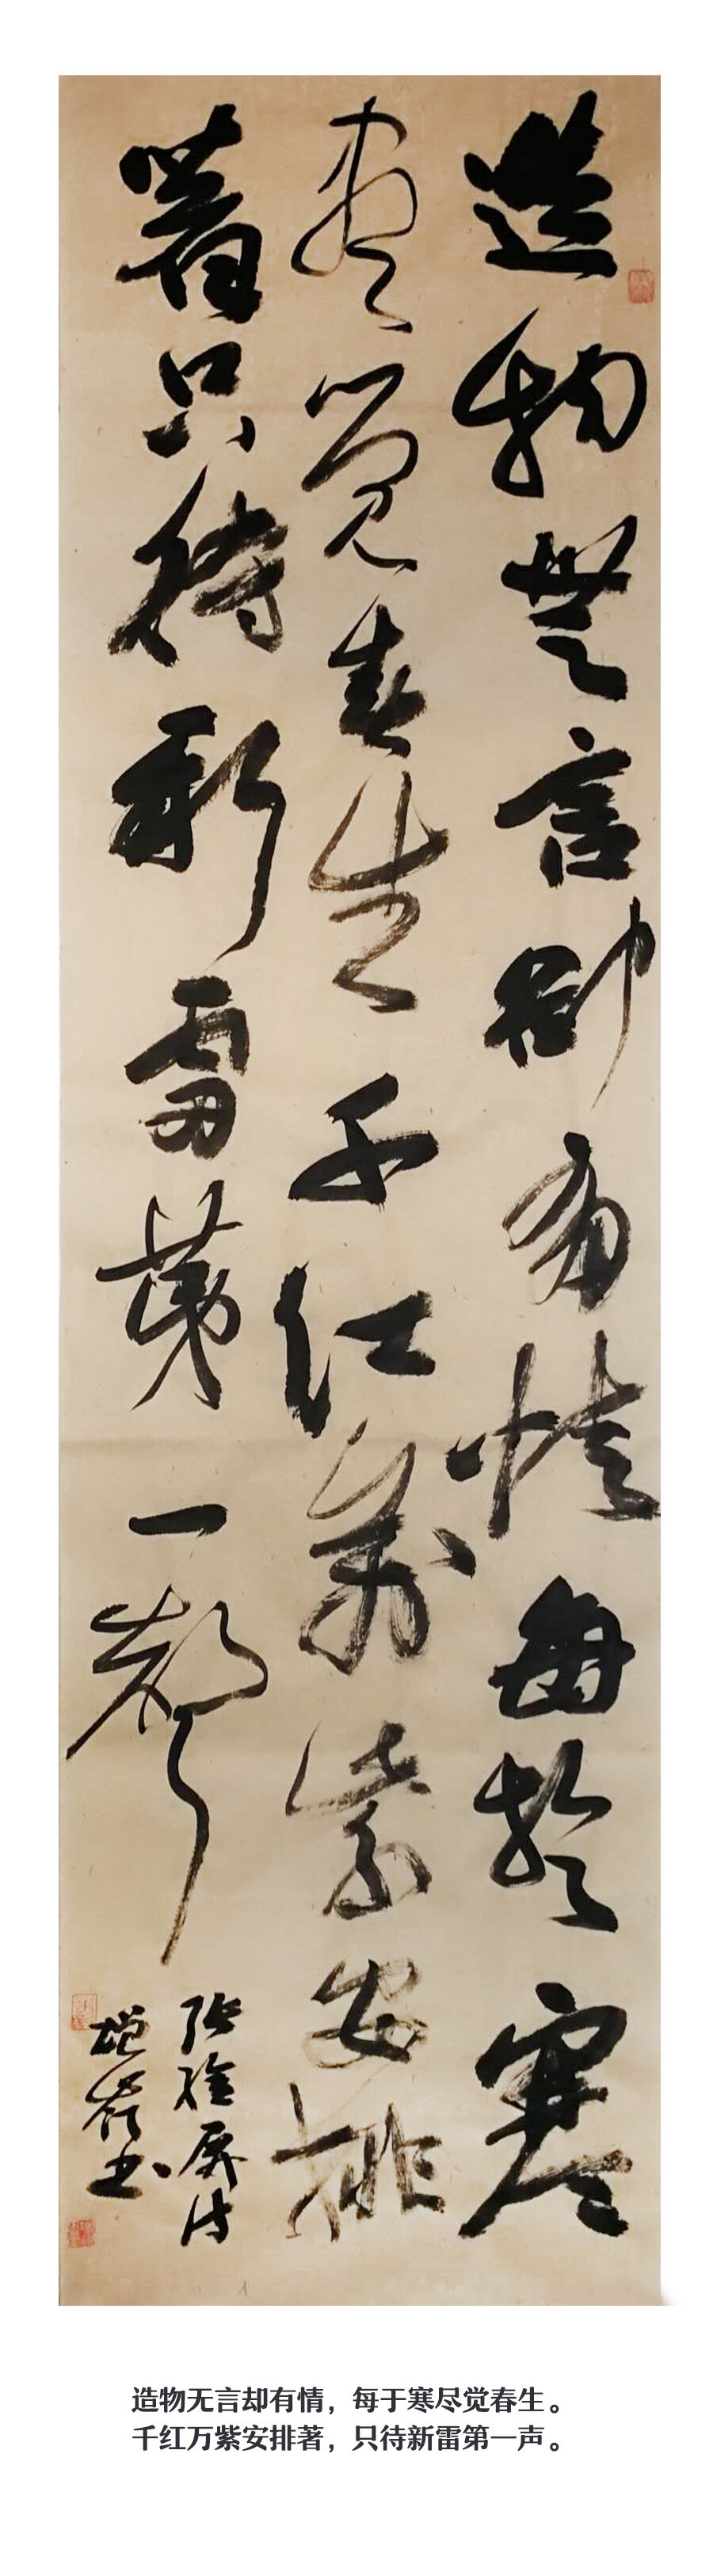 造物無言卻有情每於寒
盡覺春生千红萬紫安排
著只待新雷第一聲
張維屏诗
书
造物无言却有情，每于寒尽觉春生。
千红万紫安排著，只待新雷第一声。